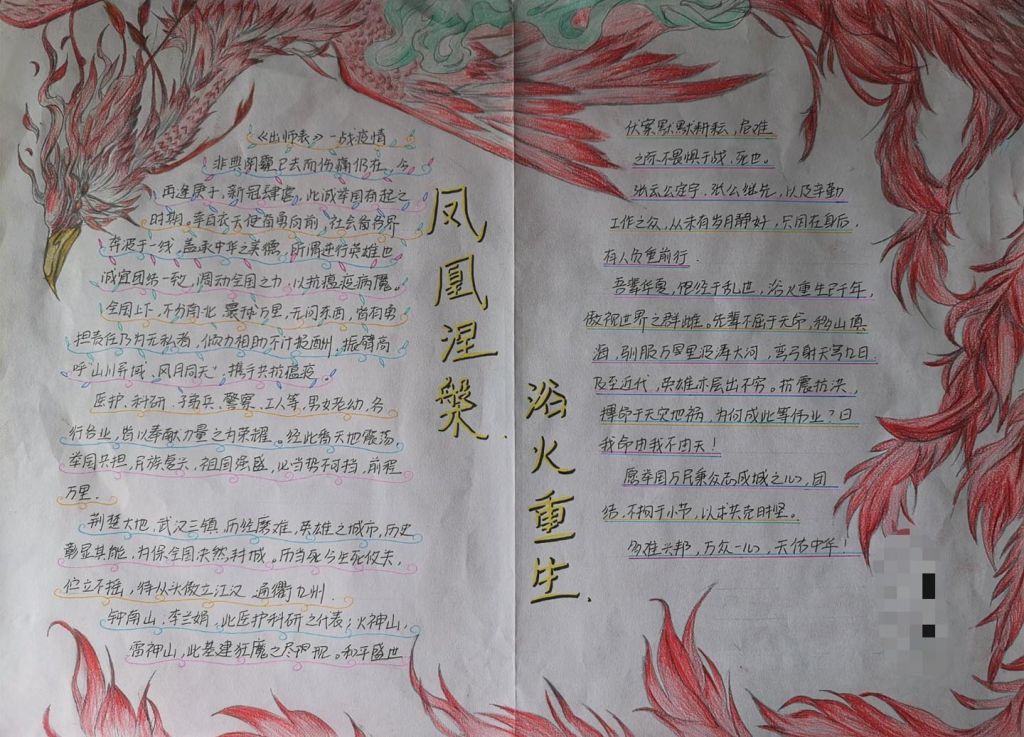 《出师表》一战疫情
非典阴霾已去而伤痛仍在，今
再逢庚子，新冠肆虐，此诚举国奋起之
时期。幸白衣天使奋勇向前，社会奋各界
奔波于一线，盖承中华之美德，所谓逆行英雄也
诚宜团结一致，调动全国之力，以抗瘟疫病魔。
全国上下，不分南北，蔓村万里，无问东西，皆有勇
担责任乃为无私者，倾力相助不计报酬，振臂高
呼"山川异域，风月同天"，携手共抗瘟疫。
医护、科研、子弟兵、警察、工人等，男女老幼，各
行各业，皆以奉献力量之为荣耀。经此番天地震荡
举国共担，民族复兴，祖国强盛，必当势不可挡，前程
万里．
荆楚大地，武汉三镇，历经磨难，英雄之城市，历史
彰显其能，为保全国决然封城。历当死与生死攸关，
伫立不摇，特从头傲立江汉，通衢九州．
钟南山、李兰娟，此医护科研之代表；火神山，
雷神山，此基建狂魔之尽阴现。和平盛世
凤凰涅槃．
浴火重生．
伏案默默耕耘，危难
之际不畏惧于战，死也。
张云公定宇，张公继先，以及辛勤
工作之众，从未有岁月静好，只因在身后，
有人负重前行．
吾辈华夏，似经于乱世，浴火重生已千年，
傲视世界之群雄。先辈不屈于天宇，移山填
海，驯服万里里波涛大河，弯弓射天穹九日．
及至近代，英雄亦层出不穷。抗震抗洪，
搏命于天灾地祸，为何成此等伟业？曰
我命由我不由天！
愿举国万民秉众志成城之心，团
结，不拘于小节，以求共克时坚。
多难兴邦，万众一心，天佑中华！